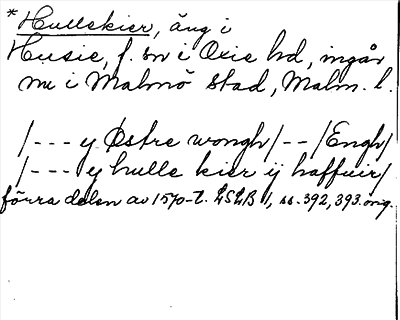 * Hullskier, äng i
Husie, f. sn i Oxie hd, ingår
nu i Malmö stad, Malm. l.
/--- y Østre wongh/--/Engh/
/--- y hulle kier ÿ haffuir/
förra delen av 1570-t. LSLB 1, ss. 392, 393. orig.